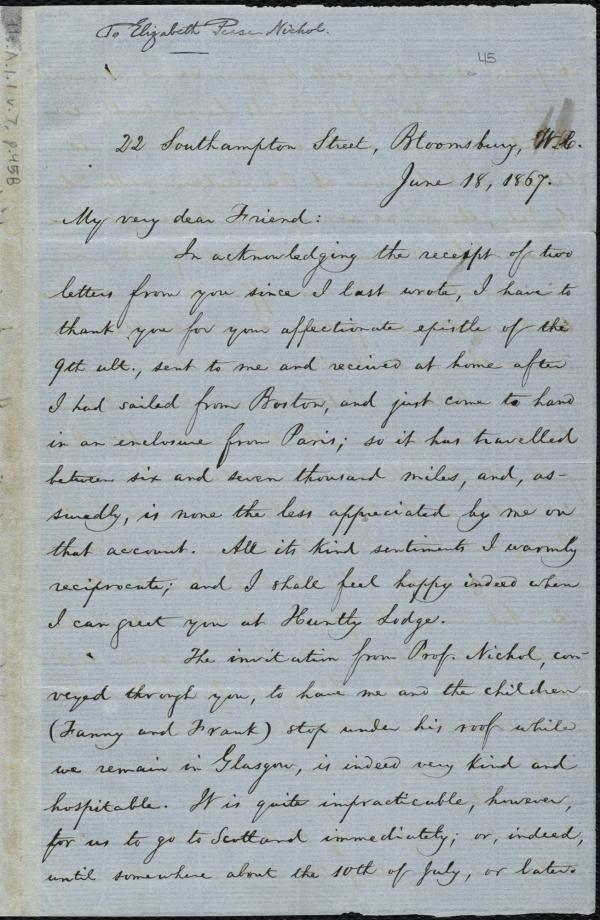 To Elizabeth Pease Nichol.
45
Ms. A. 1. 1. v. 7, p. 45B
22 Southampton Street, Bloomsbury, W.C.
June 18, 1867.
My very dear Friend:
In acknowledging the receipt of two
letters from you since I last wrote, I have to
thank you for your affectionate epistle of the
9th ult., sent to me and received at home after
I had sailed from Boston, and just come to hand
in an enclosure from Paris; so it has travelled
between six and seven thousand miles, and, as-
suredly, is none the less appreciated by me on
that account. All its kind sentiments I warmly
reciprocate; and I shall feel happy indeed when
I can greet you at Huntly Lodge.
The invitation from Prof. Nichol, con-
veyed through you, to have me and the children
(Fanny and Frank) stop under his roof while
we remain in Glasgow, is indeed very kind and
hospitable. It is quite impracticable, however,
for us to go to Scotland immediately; or, indeed,
until somewhere about the 10th of July, or later.